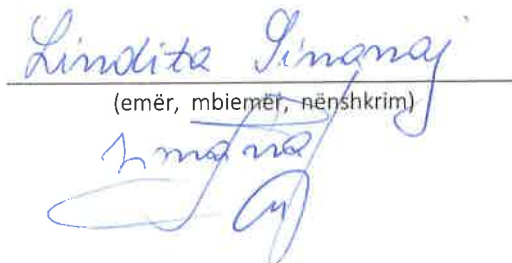 Lindita Sinanaj
(emër, mbiemër, nënshkrim)